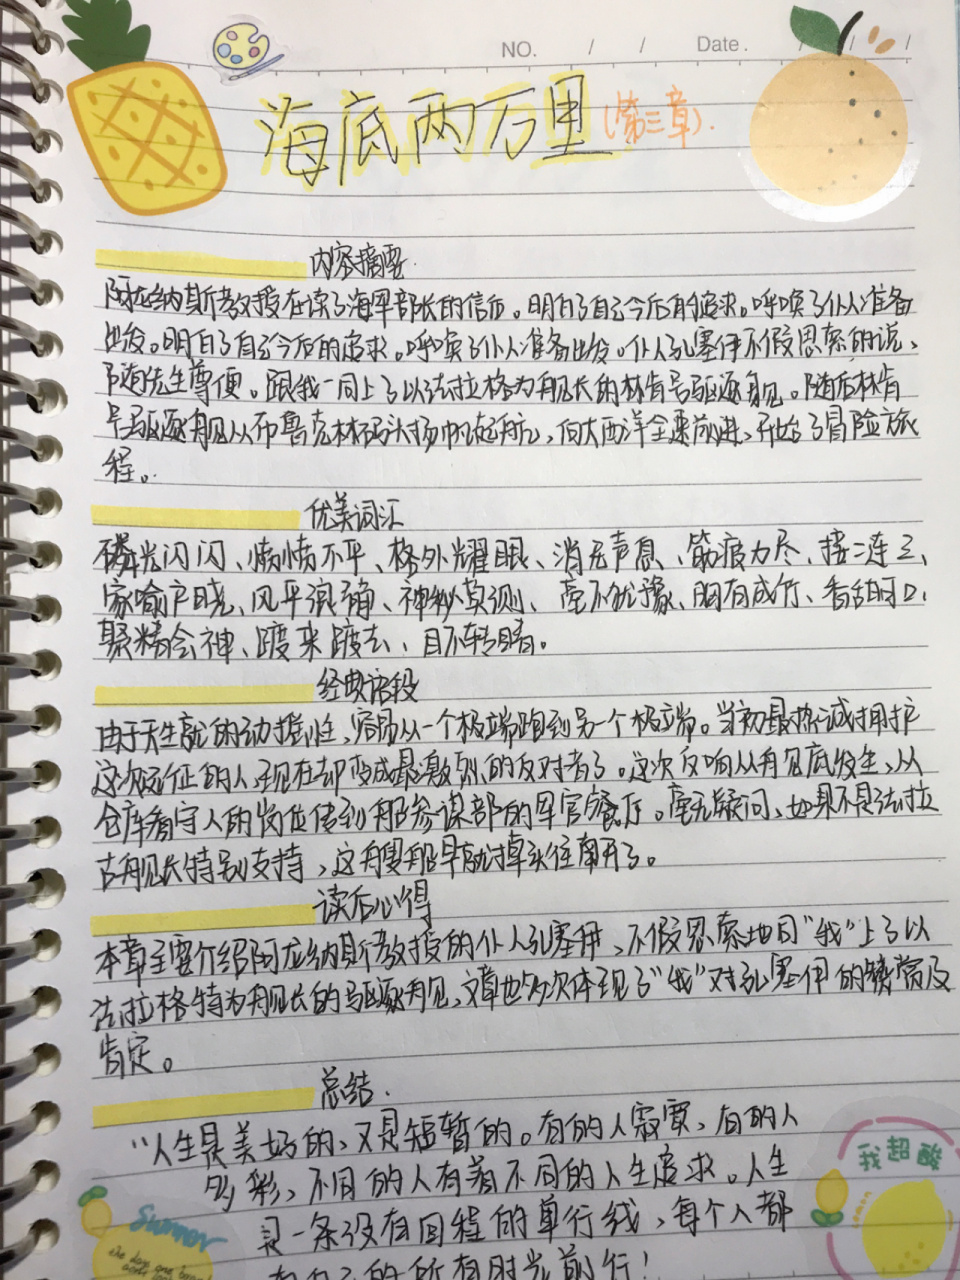 NO. / / Date. / / /
海底两万里(第三章).
内容摘要
阿龙纳斯教授在读了海军部长的信后。明白了自己今后的追求。呼唤了仆人准备
出发。明白了自己今后的追求。呼唤了仆人准备出发。仆人孔塞伊不假思索的说、
随先生尊便。跟我一同上了以法拉格为舰长的林肯号驱逐舰。随后林肯
号驱逐舰从布鲁克林码头扬帆起航、向大西洋全速前进、开始了冒险旅
程。
优美词汇
磷光闪闪、愤愤不平、格外耀眼、消无声息、筋疲力尽、接二连三、
家喻户晓、风平浪静、神秘莫测、毫不犹豫、胸有成竹、香甜可口、
聚精会神、踱来踱去、目不转睛。
经典语段
由于天生就的动摇性、容易从一个极端跑到另一个极端。当初最热诚拥护
这次远征的人现在却变成最激烈的反对者了。这次反响从舟见底发生、从
仓库看守人的岗位传到船参谋部的军官餐厅。毫无疑问、如果不是法拉
古舰长特别支持、这艘船早就掉头往南开了。
读后心得
本章主要介绍阿龙纳斯教授的仆人孔塞伊、不假思索地同“我”上了以
法拉格特为舰长的驱逐舰、文章也多次体现了“我”对孔塞伊的赞赏及
肯定。
总结.
“人生是美好的、又是短暂的。有的人寂寞、有的人
多彩、不同的人有着不同的人生追求。人生
是一条没有回程的单行线、每个人都
在自己的所有时光前行！
我超酸
Summer